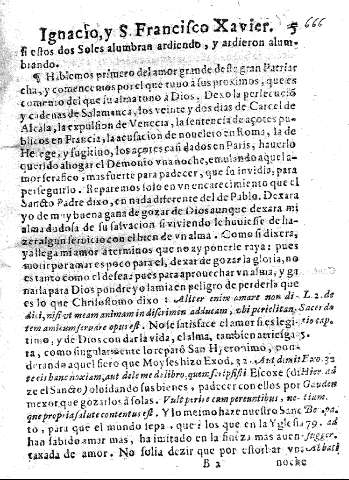 Ignacio, y S. Francisco Xavier. 5 666
si estos dos Soles alumbran ardiendo, y ardieron alum-
brando.
¶ Hablemos primero del amor grande deste gran Patriar
cha, y comencemos por el que tuvo à sus proximos, que es
comento del que su alma tonò à Dios. Dexo la perfecució
y cadenas de Salamanca, los veinte y dos dias de Carcel de
Alcala, la expulsion de Venecia, la sentencia de açotes pu-
blicos en Francia, la acusacion de novelero en Roma, la de
Herege, y fugitivo, los açotes cansados en Paris, haverlo
querido ahogar el Demonio vna noche, emulando aquel a-
mor serafico, mas fuerte para padecer, que su invidia, para
perseguirlo. Reparemos solo en vn encarecimiento que el
Sancto Padre dixo, en nada diferente del de Pablo. Dexara
yo de muy buena gana de gozar de Dios aunque dexara mi
alma dudosa de su salvacion si viviendo le huviesse de ha-
zer algun servicio con el bien de vn alma. Como si dixera,
ya llega mi amor a terminos que no ay ponerle raya: pues
morir por amar es poco para el, dexar de gozar la gloria, no
es tanto como el desea: pues para aprouechar vn alma, y ga
narla para Dios pondre yo la mia en peligro de perderla que
es lo que Chrisostomo dixo: Aliter enim amare non di- L. 2. de
dicit, nisi vt meam animam in discrimen adducam, vbi peritelitan. Sacer do
tem amicum servire opus est. No se satisface el amor si es legi- tio cap.
timo, y de Dios con dar la vida, el alma, tambien arriesga- 5.
ra, como singularmente lo reparò San Hieronimo, pon-
derando aquel fiero que Moyses hizo Exod. 32. Aut dimitte Exo. 32
eis hanc noxiam, aut dele me de libro, quem scripsisti Escoxe (dize Hier. ad
el Sancto) olvidando sus bienes, padecer con ellos por Gauden
mexor que gozarlos à solas. Vult perire cum pereuntibus, ne- tium.
que propria salute contentus est. Y lo mesmo haze nuestro Sanc Be.
to, para que el mundo sepa, que à los que en la Yglesia 79. ad
han sabido amar mas, ha imitado en la fineza mas auen- Sugger.
taxada de amor. No solia dezir que por estorbar vna Abbati
B 2 noche